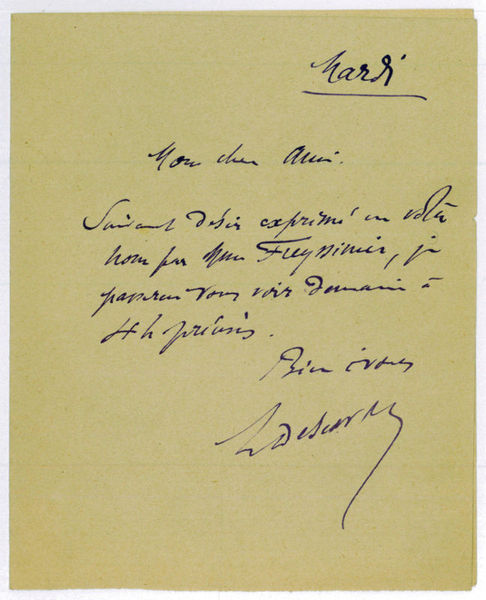 Mardi
Mon cher Ami.
Suivant désir exprimé en votre
nom par Mme Freyssinier, je
passerai vous voir demain à
4h précises.
Bien à vous